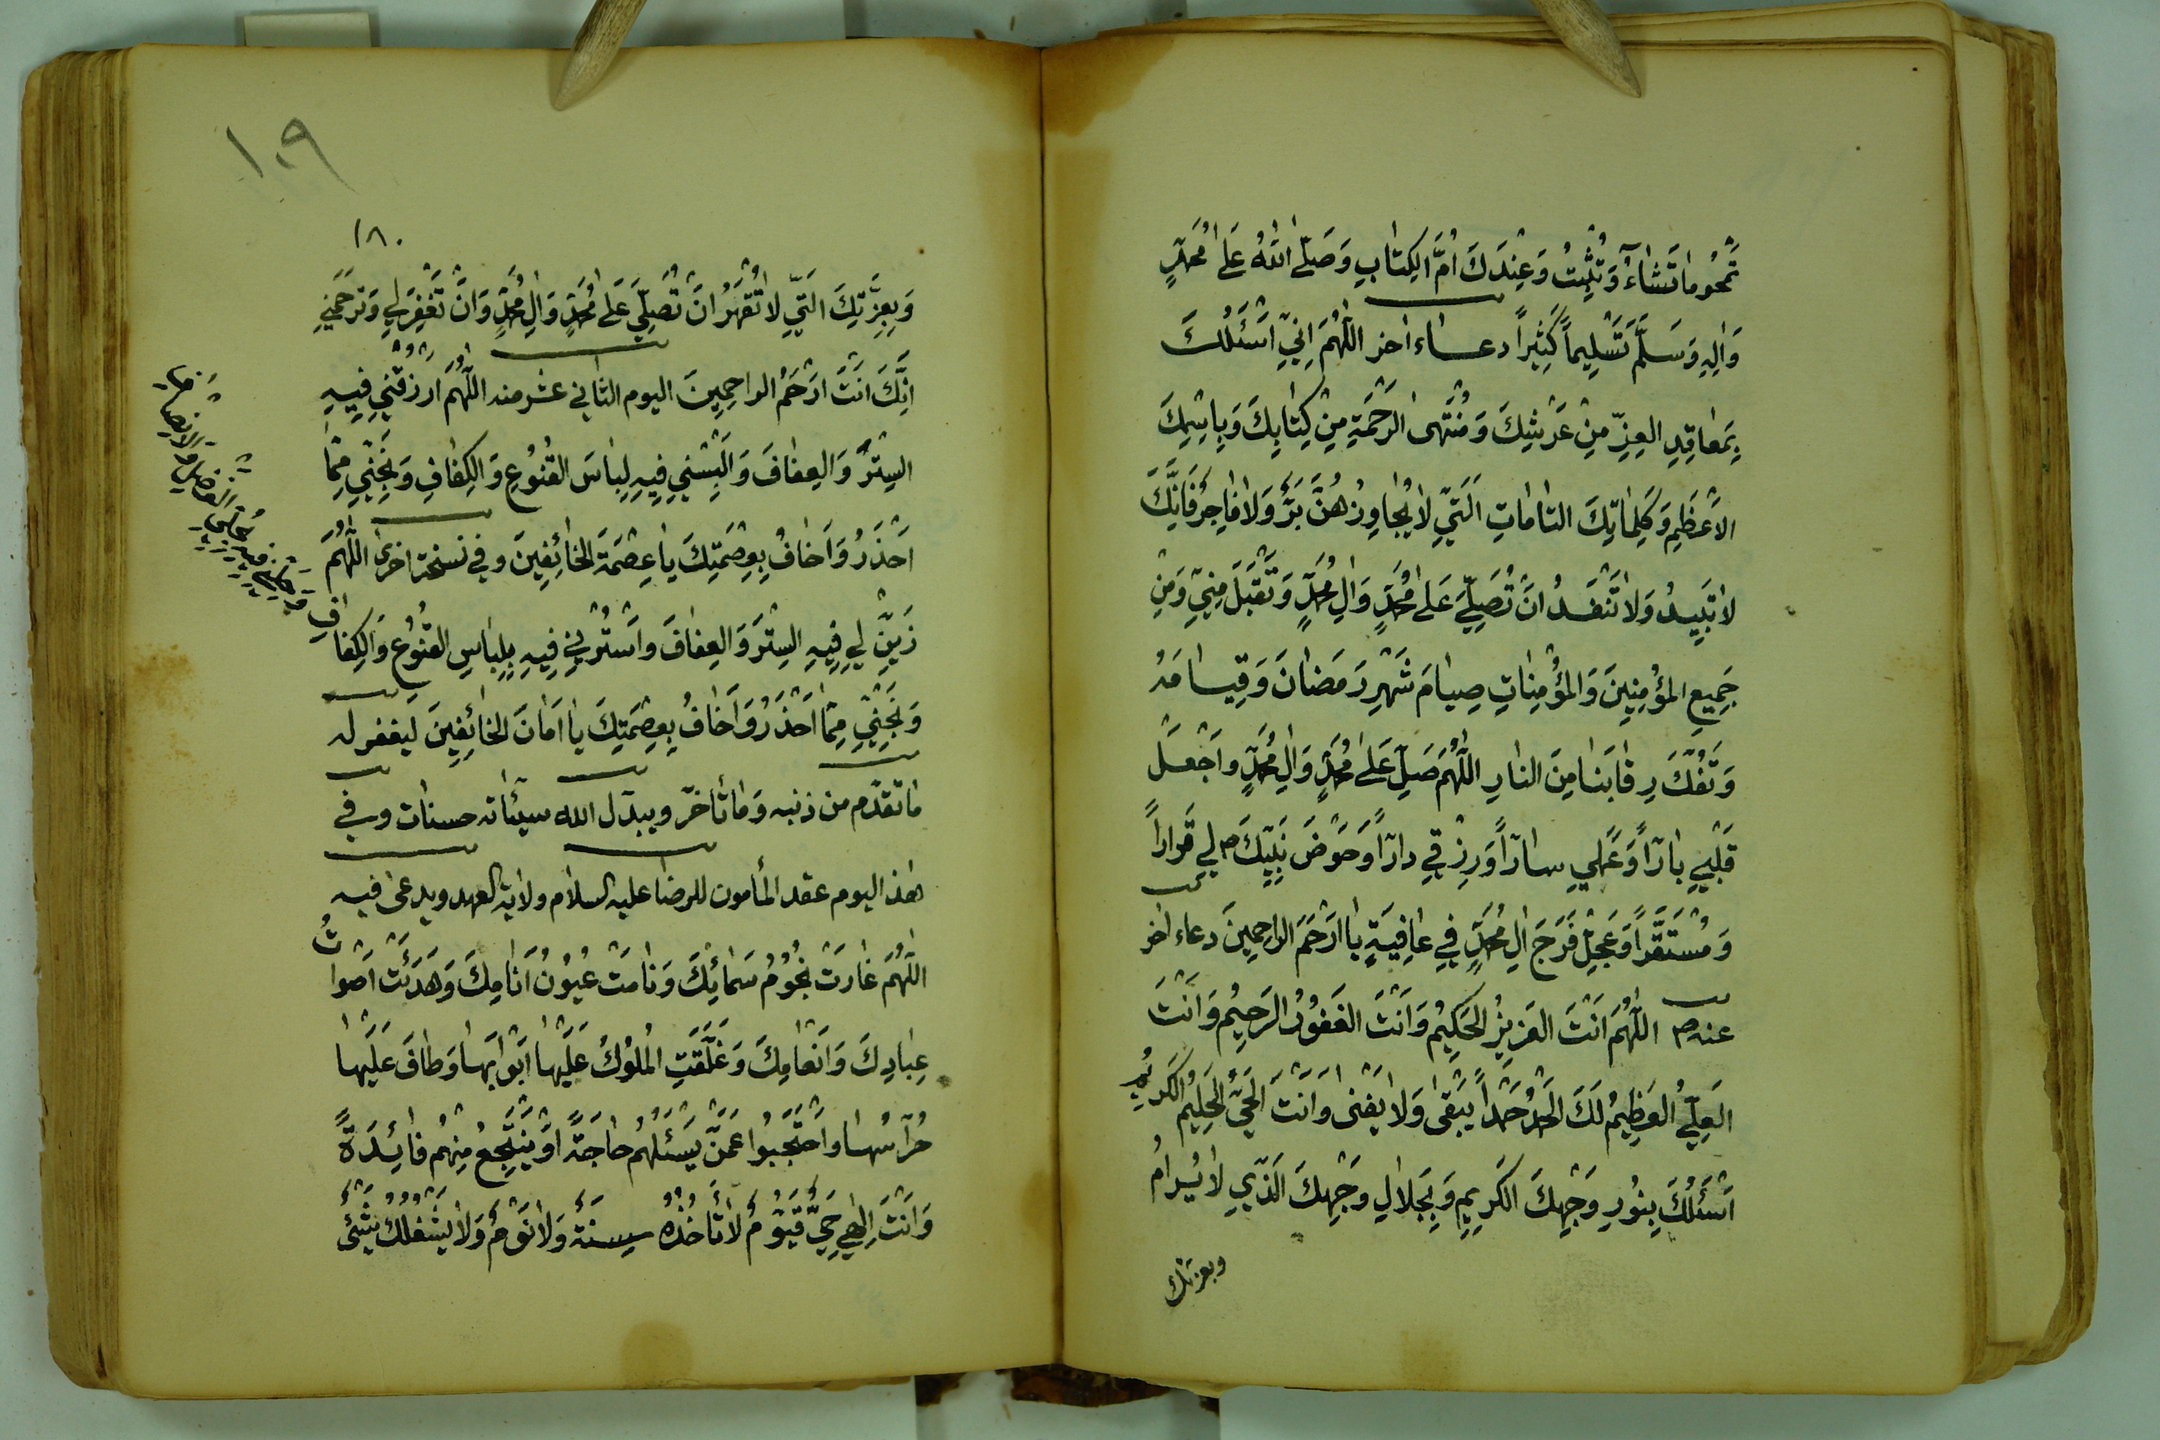 تَمْحُو مٰا تَشٰاءُ وَتُثْبِتُ وَعِنْدَكَ اُمُّ الْكِتٰابِ وَصَلَّى اللّٰهُ عَلٰى مُحَمَّدٍ
وَاٰلِهِ وَسَلَّمَ تَسْلِيماً كَثِيراً دعاء اخر اللّٰهُمَّ اِنِّي اَسْئَلُكَ
بِمَعٰاقِدِ الْعِزِّ مِنْ عَرْشِكَ وَمُنْتَهَى الرَّحْمَةِ مِنْ كِتٰابِكَ وَبِاسْمِكَ
الْاَعْظَمِ وَكَلِمٰاتِكَ التّٰامّٰاتِ الَّتِي لٰا يُجٰاوِزُهُنَّ بَرٌّ وَلٰا فٰاجِرٌ فَاِنَّكَ
لٰا تَبِيدُ وَلٰا تَنْفَدُ اَنْ تُصَلِّيَ عَلٰى مُحَمَّدٍ وَاٰلِ مُحَمَّدٍ وَتَقَبَّلَ مِنِّي وَمِنْ
جَمِيعِ الْمُؤْمِنِينَ وَالْمُؤْمِنٰاتِ صِيٰامَ شَهْرِ رَمَضٰانَ وَقِيٰامَهُ
وَتَفُكَّ رِقٰابَنٰا مِنَ النّٰارِ اللّٰهُمَّ صَلِّ عَلٰى مُحَمَّدٍ وَاٰلِ مُحَمَّدٍ وَاجْعَلْ
قَلْبِي بٰارّاً وَعَمَلِي سٰارّاً وَرِزْقِي دٰارّاً وَحَوْضَ نَبِيِّكَ ص لِي قَرٰاراً
وَمُسْتَقَرّاً وَعَجِّلْ فَرَجَ اٰلِ مُحَمَّدٍ فِي عٰافِيَةٍ يٰا اَرْحَمَ الرّٰاحِمِينَ دعاء اخر
عنه ص اللّٰهُمَّ اَنْتَ الْعَزِيزُ الْحَكِيمُ وَاَنْتَ الْغَفُورُ الرَّحِيمُ وَاَنْتَ
الْعَلِيُّ الْعَظِيمُ لَكَ الْحَمْدُ حَمْداً يَبْقٰى وَلٰا يَفْنٰى وَاَنْتَ الْحَيُّ الْحَلِيمُ الْكَرِيمُ
اَسْئَلُكَ بِنُورِ وَجْهِكَ الْكَرِيمِ وَبِجَلٰالِ وَجْهِكَ الَّذِي لٰا يُرٰامُ
وبعزتك
١٠٩
١٨٠
وَبِعِزَّتِكَ الَّتِي لٰا تُقْهَرُ اَنْ تُصَلِّيَ عَلٰى مُحَمَّدٍ وَاٰلِ مُحَمَّدٍ وَاَنْ تَغْفِرَ لِي وَتَرْحَمَنِي
اِنَّكَ اَنْتَ اَرْحَمُ الرّٰاحِمِينَ اليوم الثاني عشر منه اللّٰهُمَّ ارْزُقْنِي فِيهِ
السِّتْرَ وَالْعِفٰافَ وَاَلْبِسْنِي فِيهِ لِبٰاسَ الْقُنُوعِ وَالْكِفٰافِ وَنَجِّنِي مِمّٰا
اَحْذَرُ وَاَخٰافُ بِعِصْمَتِكَ يٰا عِصْمَةَ الْخٰائِفِينَ وفي نسخة اخرى اللّٰهُمَّ
زَيِّنْ لِي فِيهِ السِّتْرَ وَالْعِفٰافَ وَاسْتُرْنِي فِيهِ بِلِبٰاسِ الْقُنُوعِ وَالْكِفٰافِ
وَنَجِّنِي مِمّٰا اَحْذَرُ وَاَخٰافُ بِعِصْمَتِكَ يٰا اَمٰانَ الْخٰائِفِينَ ليغفر له
ما تقدّم من ذنبه وما تأخّر ويبدّل الله سيئاته حسنات وفي
هذا اليوم عقد المأمون للرضا عليه السلام ولاية العهد ويدعى فيه
اللّٰهُمَّ غٰارَتْ نُجُومُ سَمٰائِكَ وَنٰامَتْ عُيُونُ اَنٰامِكَ وَهَدَئَتْ اَصْوٰاتُ
عِبٰادِكَ وَاَنْعٰامِكَ وَغَلَّقَتِ الْمُلُوكُ عَلَيْهٰا اَبْوٰابَهٰا وَطٰافَ عَلَيْهٰا
حُرّٰاسُهٰا وَاحْتَجَبُوا عَمَّنْ يَسْئَلُهُمْ حٰاجَةً اَوْ يَنْتَجِعُ مِنْهُمْ فٰائِدَةً
وَاَنْتَ اِلٰهِي حَيٌّ قَيُّومٌ لٰا تَأْخُذُهُ سِنَةٌ وَلٰا نَوْمٌ وَلٰا يَشْغَلُكَ شَيْئٌ